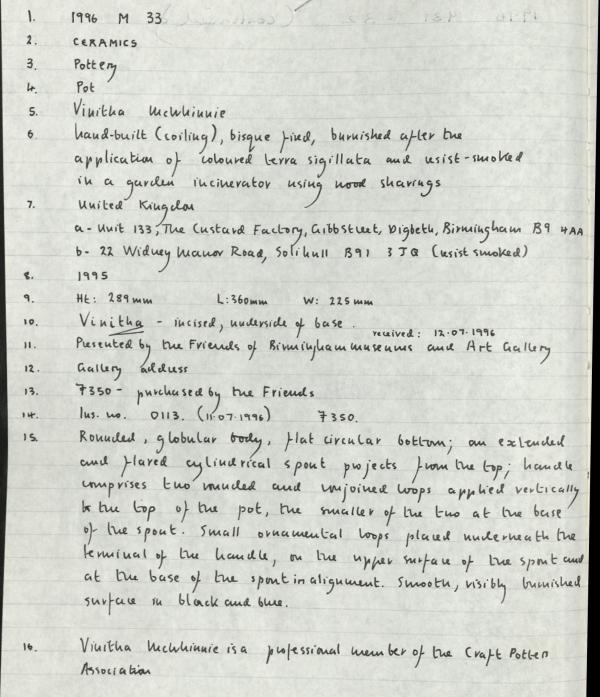 1. 1996 M 33
2. CERAMICS
3. Pottery
4. Pot
5. Vinitha McWhinnie
6. hand-built (coiling), bisque fired, burnished after the
application of coloured terra sigillata and resist-smoked
in a garden incinerator using wood shavings
7. United Kingdom
a - Unit 133, The Custard Factory, Gibb Street, Digbeth, Birmingham B9 4AA
b - 22 Widney Manor Road, Solihull B91 3JQ (resist smoked)
8. 1995
9. Ht: 289mm L: 360mm W: 225mm
10. Vinitha - incised, underside of base.
received: 12.07.1996
11. Presented by the Friends of Birmingham museums and Art Gallery
12. Gallery address
13. £350 - purchased by the Friends
14. Ins. no. 0113. (11.07.1996) £350.
15. Rounded, globular body, flat circular bottom; an extended
and flared cylindrical spout projects from the top; handle
comprises two rounded and unjoined loops applied vertically
to the top of the pot, the smaller of the two at the base
of the spout. Small ornamental loops placed underneath the
terminal of the handle, on the upper surface of the spout and
at the base of the spout in alignment. Smooth, visibly burnished
surface in black and blue.
16. Vinitha McWhinnie is a professional member of the Craft Potters
Association